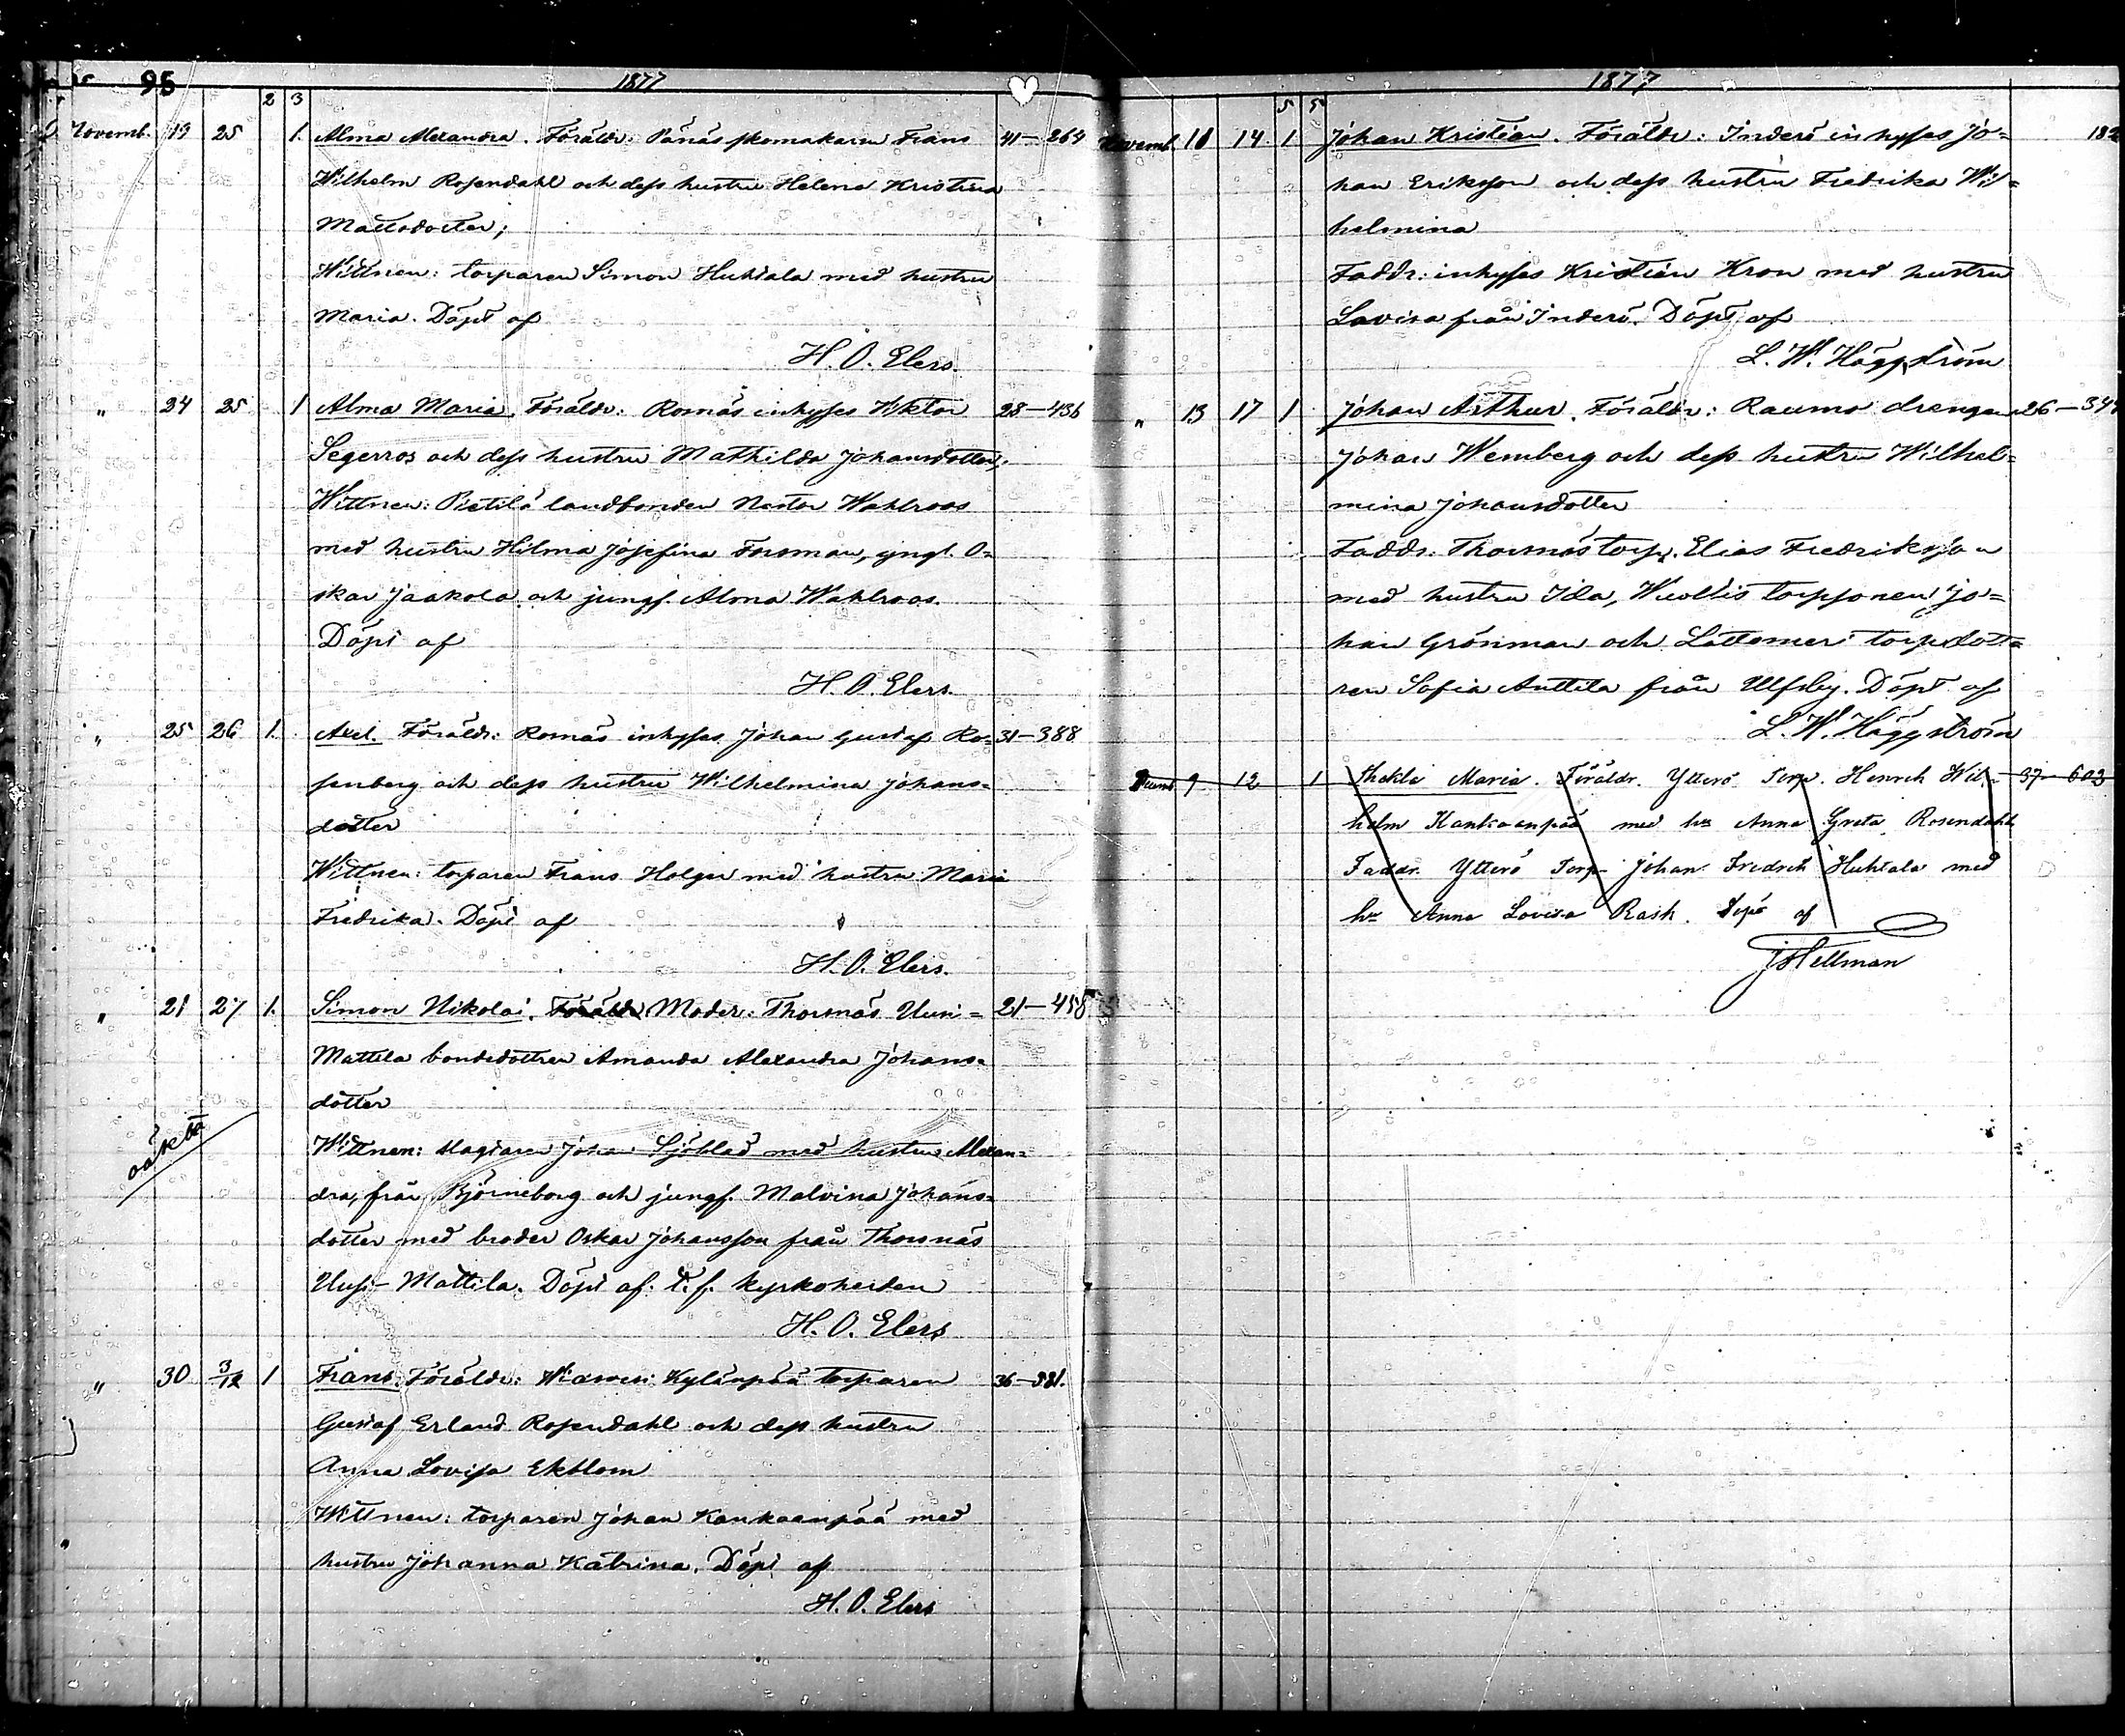 95 1877
2 3
Novemb. 19 25 1. Alma Alexandra. Föräldr: Pånäs skomakaren Frans 41-264
Wilhelm Rosendahl och dess hustru Helena Kristina
Mattsdotter;
Wittnen: torparen Simon Huhtala med hustru
Maria. Döpt af
H. O. Elers.
" 24 25 1 Alma Maria. Föräldr: Romäs inhyses Viktor 28-436
Segerros och dess hustru Mathilda Johansdotter.
Wittnen: Pietilä landbonden Nestor Wahlroos
med hustru Hilma Josefina Forsman, yngl. O=
skar Jaakola och jungf. Alma Wahlroos.
Döpt af
H. O. Elers.
" 25 26 1. Axel. Föräldr: Romäs inhyses Johan Gustaf Ro= 31-388
senberg och dess hustru Wilhelmina Johans=
dotter
Wittnen: torparen Frans Holger med hustru Maria
Fredrika. Döpt af
H. O. Elers.
" 21 27 1. Simon Nikolai. Föräldr Moder: Thorsnäs Uusi= 21-458
Mattila bondedottren Amanda Alexandra Johans=
dotter
oäkta
Wittnen: Johan Sjöblad med hustru Alexan=
dra, från Björneborg och jungf. Malvina Johans=
dotter med broder Oskar Johansson från Thorsnäs
Uusi-Mattila. Döpt af t. f. kyrkoherden
H. O. Elers
" 30 3/12 1 Frans. Föräldr: Kylänpää torparen 36-381.
Gustaf Erland Rosendahl och dess hustru
Anna Lovisa Ekblom
Wittnen: torparen Johan Kankaanpää med
hustru Johanna Katrina. Döpt af
H. O. Elers
1877
5 5
Novemb. 10 14 1 Johan Kristian. Föräldr: Inderö inhyses Jo= 182
han Eriksson och dess hustru Fredrika Wil=
helmina
Faddr: inhyses Kristian Kron med hustru
Lovisa från Inderö. Döpt af
L. W. Häggström
" 13 17 1 Johan Arthur. Föräldr: Raumo drengen 26-344
Johan Wemberg och dess hustru Wilhel=
mina Johansdotter
Faddr: Thorsnäs torp. Elias Fredriksson
med hustru Ida, torpsonen Jo=
han Grönman och Lattomeri torpdott=
ren Sofia Anttila från Ulfsby. Döpt af
L. W. Häggström
9 12 1 Thekla Maria. Föräldr. Ytterö Torp. Henrik Wil= 37-602
helm Kankaanpää med hu Anna Greta Rosendahl
Faddr. Ytterö Torp. Johan Fredrik Huhtala med
hu Anna Lovisa Rask. Döpt af
J Hellman